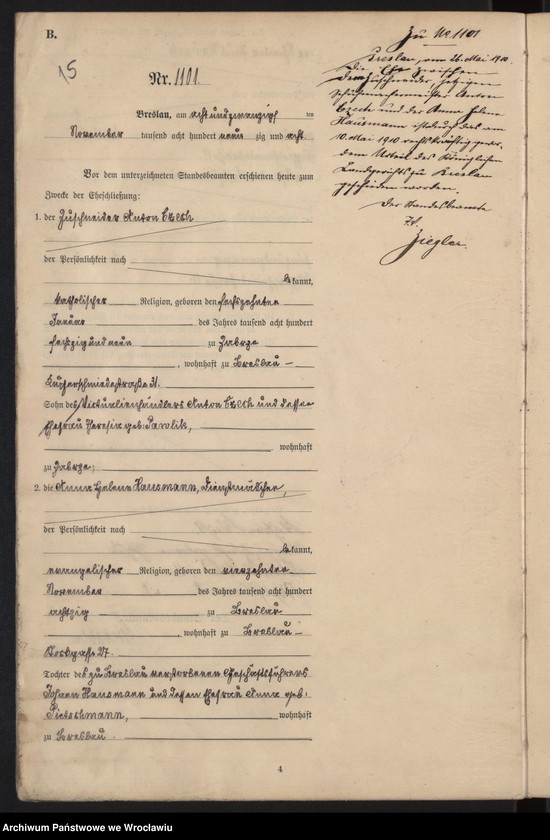 B.
15
Nr. 1101
Breslau, am acht und zwanzigsten
November tausend acht hundert neun zig und acht
Vor dem unterzeichneten Standesbeamten erschienen heute zum
Zwecke der Eheschließung:
1. der Zuschneider Anton Czech
der Persönlichkeit nach
bekannt,
katholischer Religion, geboren den sechszehnten
Januar des Jahres tausend acht hundert
sechzig und neun zu Zabrze
, wohnhaft zu Breslau –
31.
Sohn des Victualienhändlers Anton Czech und dessen
Ehefrau Theresia geb: Pawlik,
wohnhaft
zu Zabrze;
2. die Anna Helene Hausmann, Dienstmädchen,
der Persönlichkeit nach
bekannt,
evangelischer Religion, geboren den vierzehnten
November des Jahres tausend acht hundert
achtzig zu Breslau
, wohnhaft zu Breslau –
27.
Tochter des zu Breslau verstorbenen Geschäftsführers
Johann Hausmann und dessen Ehefrau Anna geb:
wohnhaft
zu Breslau.
4
Zu No. 1101
Breslau, am 26. Mai 1910.
Die Ehe zwischen
dem Zuschneider, jetzigen
Anton
Czech und der Anna Helene
Hausmann ist durch das am
10. Mai 1910 rechtskräftig gewor-
dene Urteil des Königlichen
Landgerichts zu Breslau
geschieden worden.
Der Standesbeamte
Ziegler.
Archiwum Państwowe we Wrocławiu